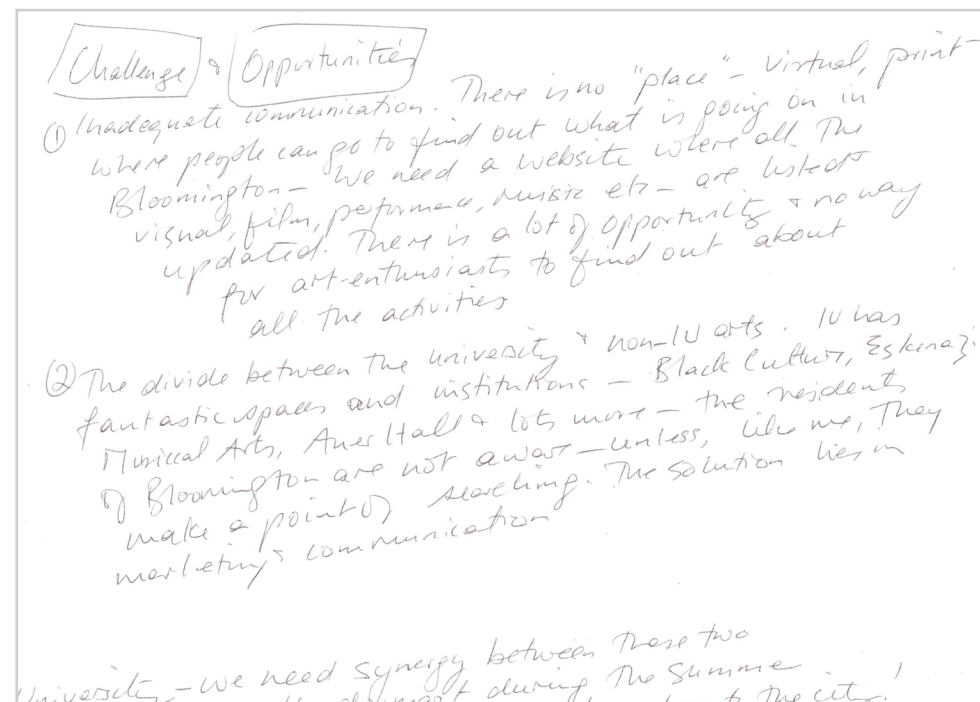 Challenge & Opportunities
① Inadequate communication. There is no "place" - virtual, print
where people can go to find out what is going on in
Bloomington - We need a website where all the
visual, film, performance, music etc - are listed &
updated. There is a lot of opportunity & no way
for art-enthusiasts to find out about
all the activities
② The divide between the university & non-IU arts. IU has
fantastic spaces and institutions - Black Culture, Eskenazi
Musical Arts, Auer Hall & lots more - the residents
of Bloomington are not aware - unless, like me, they
make a point of searching. The solution lies in
marketing & communication
University - we need synergy between these two
during the summe
to the city!